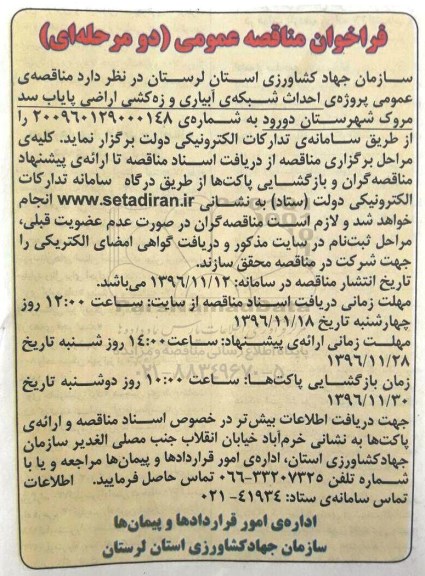 فراخوان مناقصه عمومی (دو مرحله‌ای)
سازمان جهاد کشاورزی استان لرستان در نظر دارد مناقصه‌ی
عمومی پروژه‌ی احداث شبکه‌ی آبیاری و زه‌کشی اراضی پایاب سد
مروک شهرستان دورود به شماره‌ی ۲۰۰۹۶۰۱۲۹۰۰۰۱۴۸ را
از طریق سامانه‌ی تدارکات الکترونیکی دولت برگزار نماید. کلیه‌ی
مراحل برگزاری مناقصه از دریافت اسناد مناقصه تا ارائه‌ی پیشنهاد
مناقصه‌گران و بازگشایی پاکت‌ها از طریق درگاه سامانه تدارکات
الکترونیکی دولت (ستاد) به نشانی www.setadiran.ir انجام
خواهد شد و لازم است مناقصه‌گران در صورت عدم عضویت قبلی،
مراحل ثبت‌نام در سایت مذکور و دریافت گواهی امضای الکتریکی را
جهت شرکت در مناقصه محقق سازند.
تاریخ انتشار مناقصه در سامانه: ۱۳۹۶/۱۱/۱۲ می‌باشد.
مهلت زمانی دریافت اسناد مناقصه از سایت: ساعت ۱۲:۰۰ روز
چهارشنبه تاریخ ۱۳۹۶/۱۱/۱۸
مهلت زمانی ارائه‌ی پیشنهاد: ساعت ۱۴:۰۰ روز شنبه تاریخ
۱۳۹۶/۱۱/۲۸
زمان بازگشایی پاکت‌ها: ساعت ۱۰:۰۰ روز دوشنبه تاریخ
۱۳۹۶/۱۱/۳۰
جهت دریافت اطلاعات بیش‌تر در خصوص اسناد مناقصه و ارائه‌ی
پاکت‌ها به نشانی خرم‌آباد خیابان انقلاب جنب مصلی الغدیر سازمان
جهادکشاورزی استان، اداره‌ی امور قراردادها و پیمان‌ها مراجعه و یا با
شماره تلفن ۳۳۲۰۷۳۲۵-۰۶۶ تماس حاصل فرمایید. اطلاعات
تماس سامانه‌ی ستاد: ۴۱۹۳۴- ۰۲۱
اداره‌ی امور قراردادها و پیمان‌ها
سازمان جهادکشاورزی استان لرستان
پایگاه اطلاع رسانی مناقصه و مزایده
۰۲۱-۸۸۳۴۹۶۷۰-۵